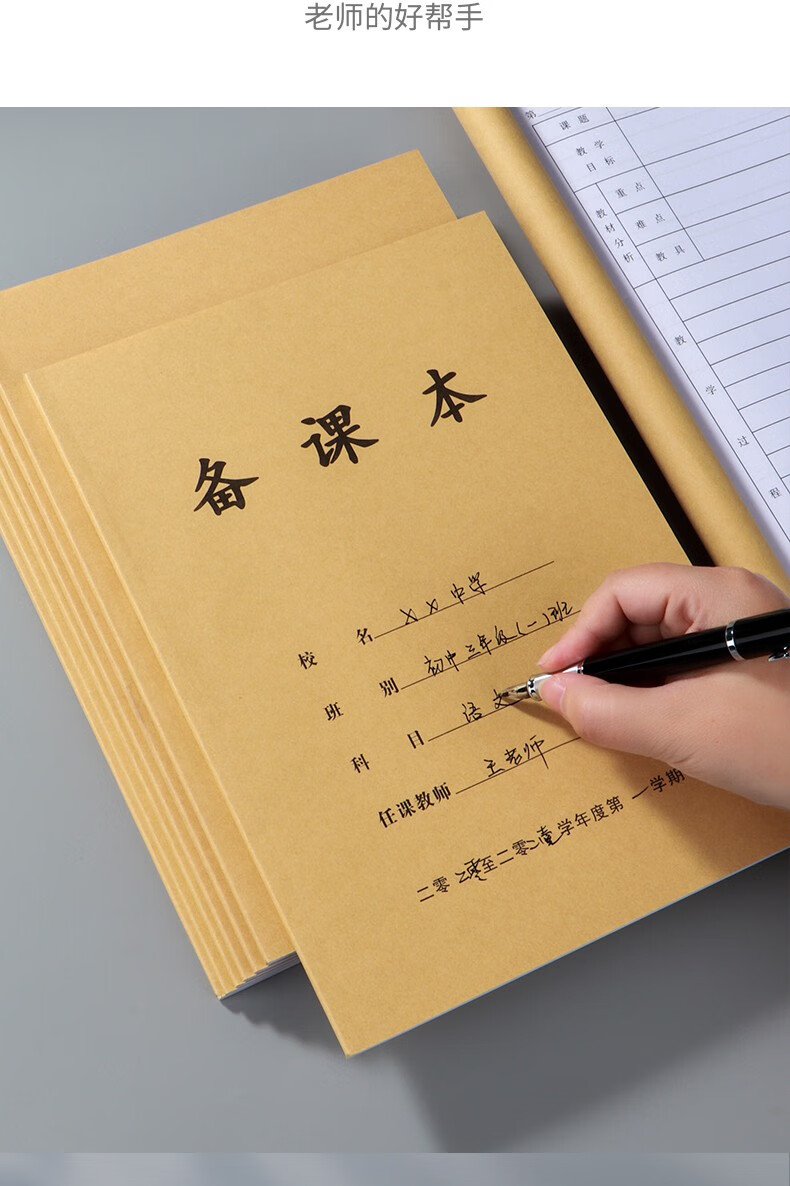 老师的好帮手
备课本
校名 XX中学
班别 初中三年级(一)班
科目 语文
任课教师 王老师
二零二零至二零二壹学年度第一学期
第
课题
教学目标
教材分析
重点
难点
教具
教学过程